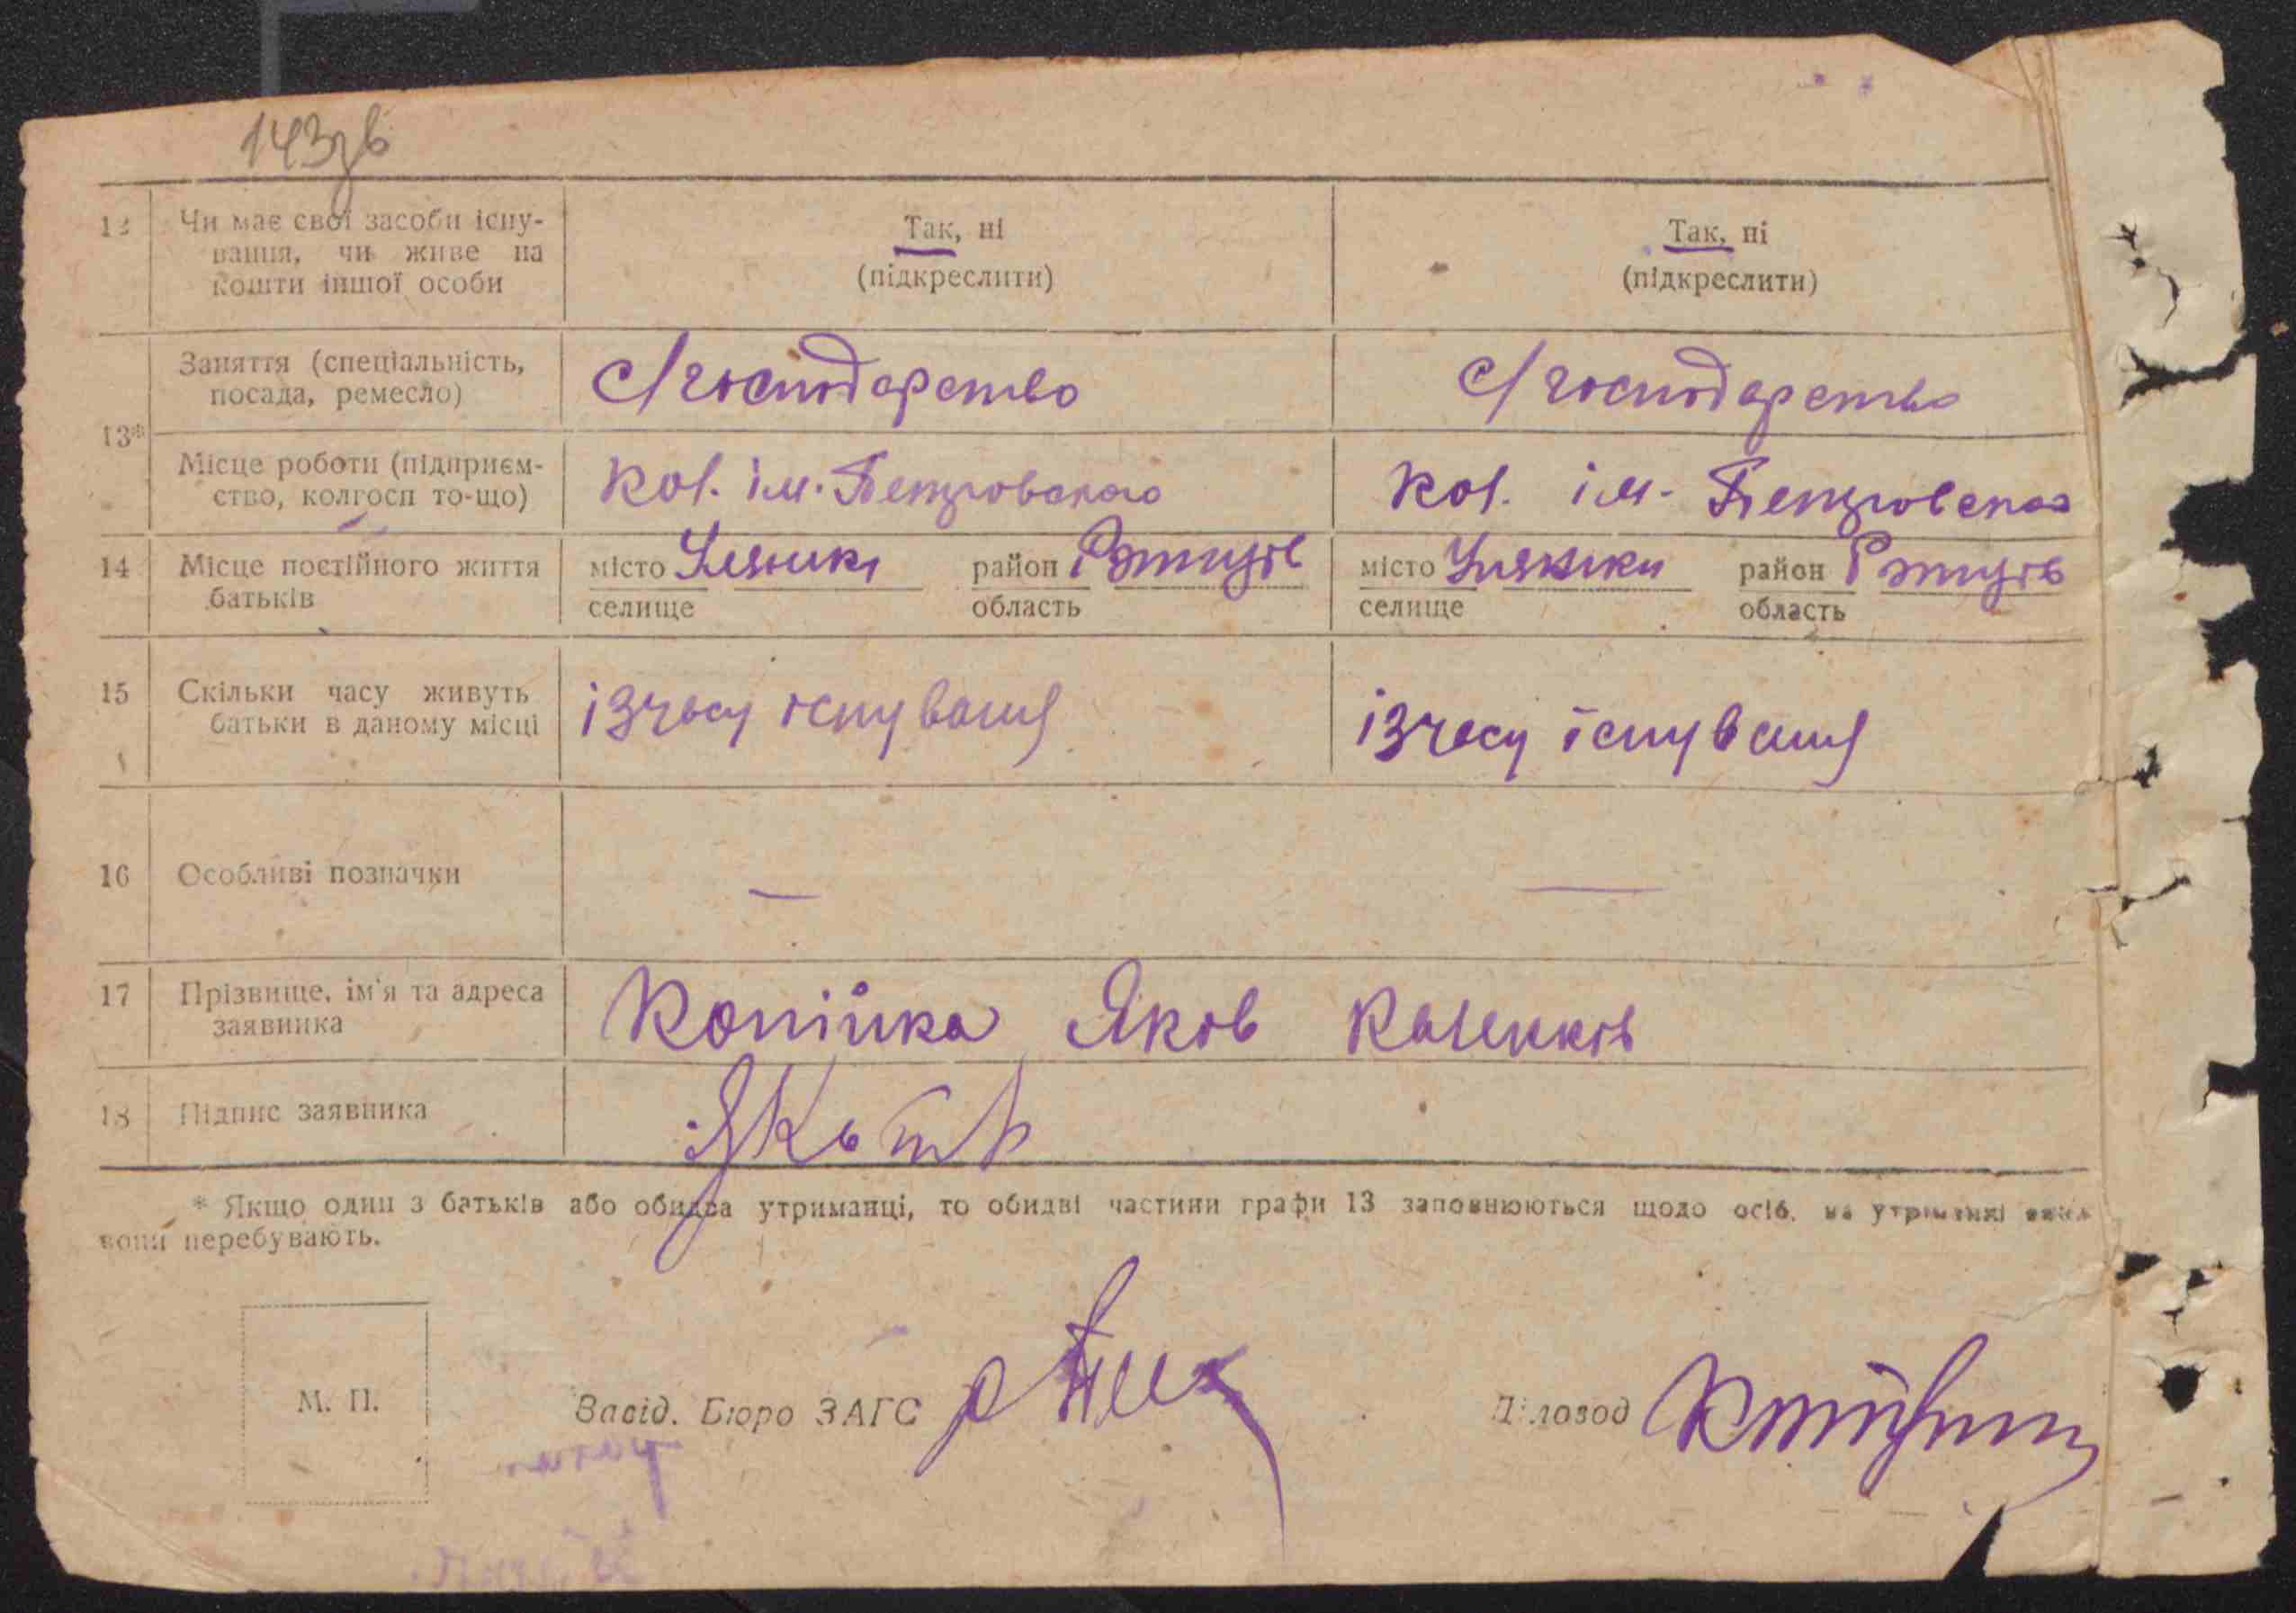 143зв
12 Чи має свої засоби існу- Так, ні Так, ні
вання, чи живе на (підкреслити) (підкреслити)
кошти іншої особи
Заняття (спеціальність, с/господарство с/господарство
посада, ремесло)
13*
Місце роботи (підприєм- кол. ім. Петровского кол. ім. Петровского
ство, колгосп то-що)
14 Місце постійного життя місто район місто район
батьків селище область селище область
15 Скільки часу живуть із часу існування із часу існування
батьки в даному місці
16 Особливі позначки — —
17 Прізвище, ім'я та адреса Копійка Яків
заявника
18 Підпис заявника
* Якщо один з батьків або обидва утриманці, то обидві частини графи 13 заповнюються щодо осіб, на утриманні яких
вони перебувають.
М. П. Завід. Бюро ЗАГС Діловод